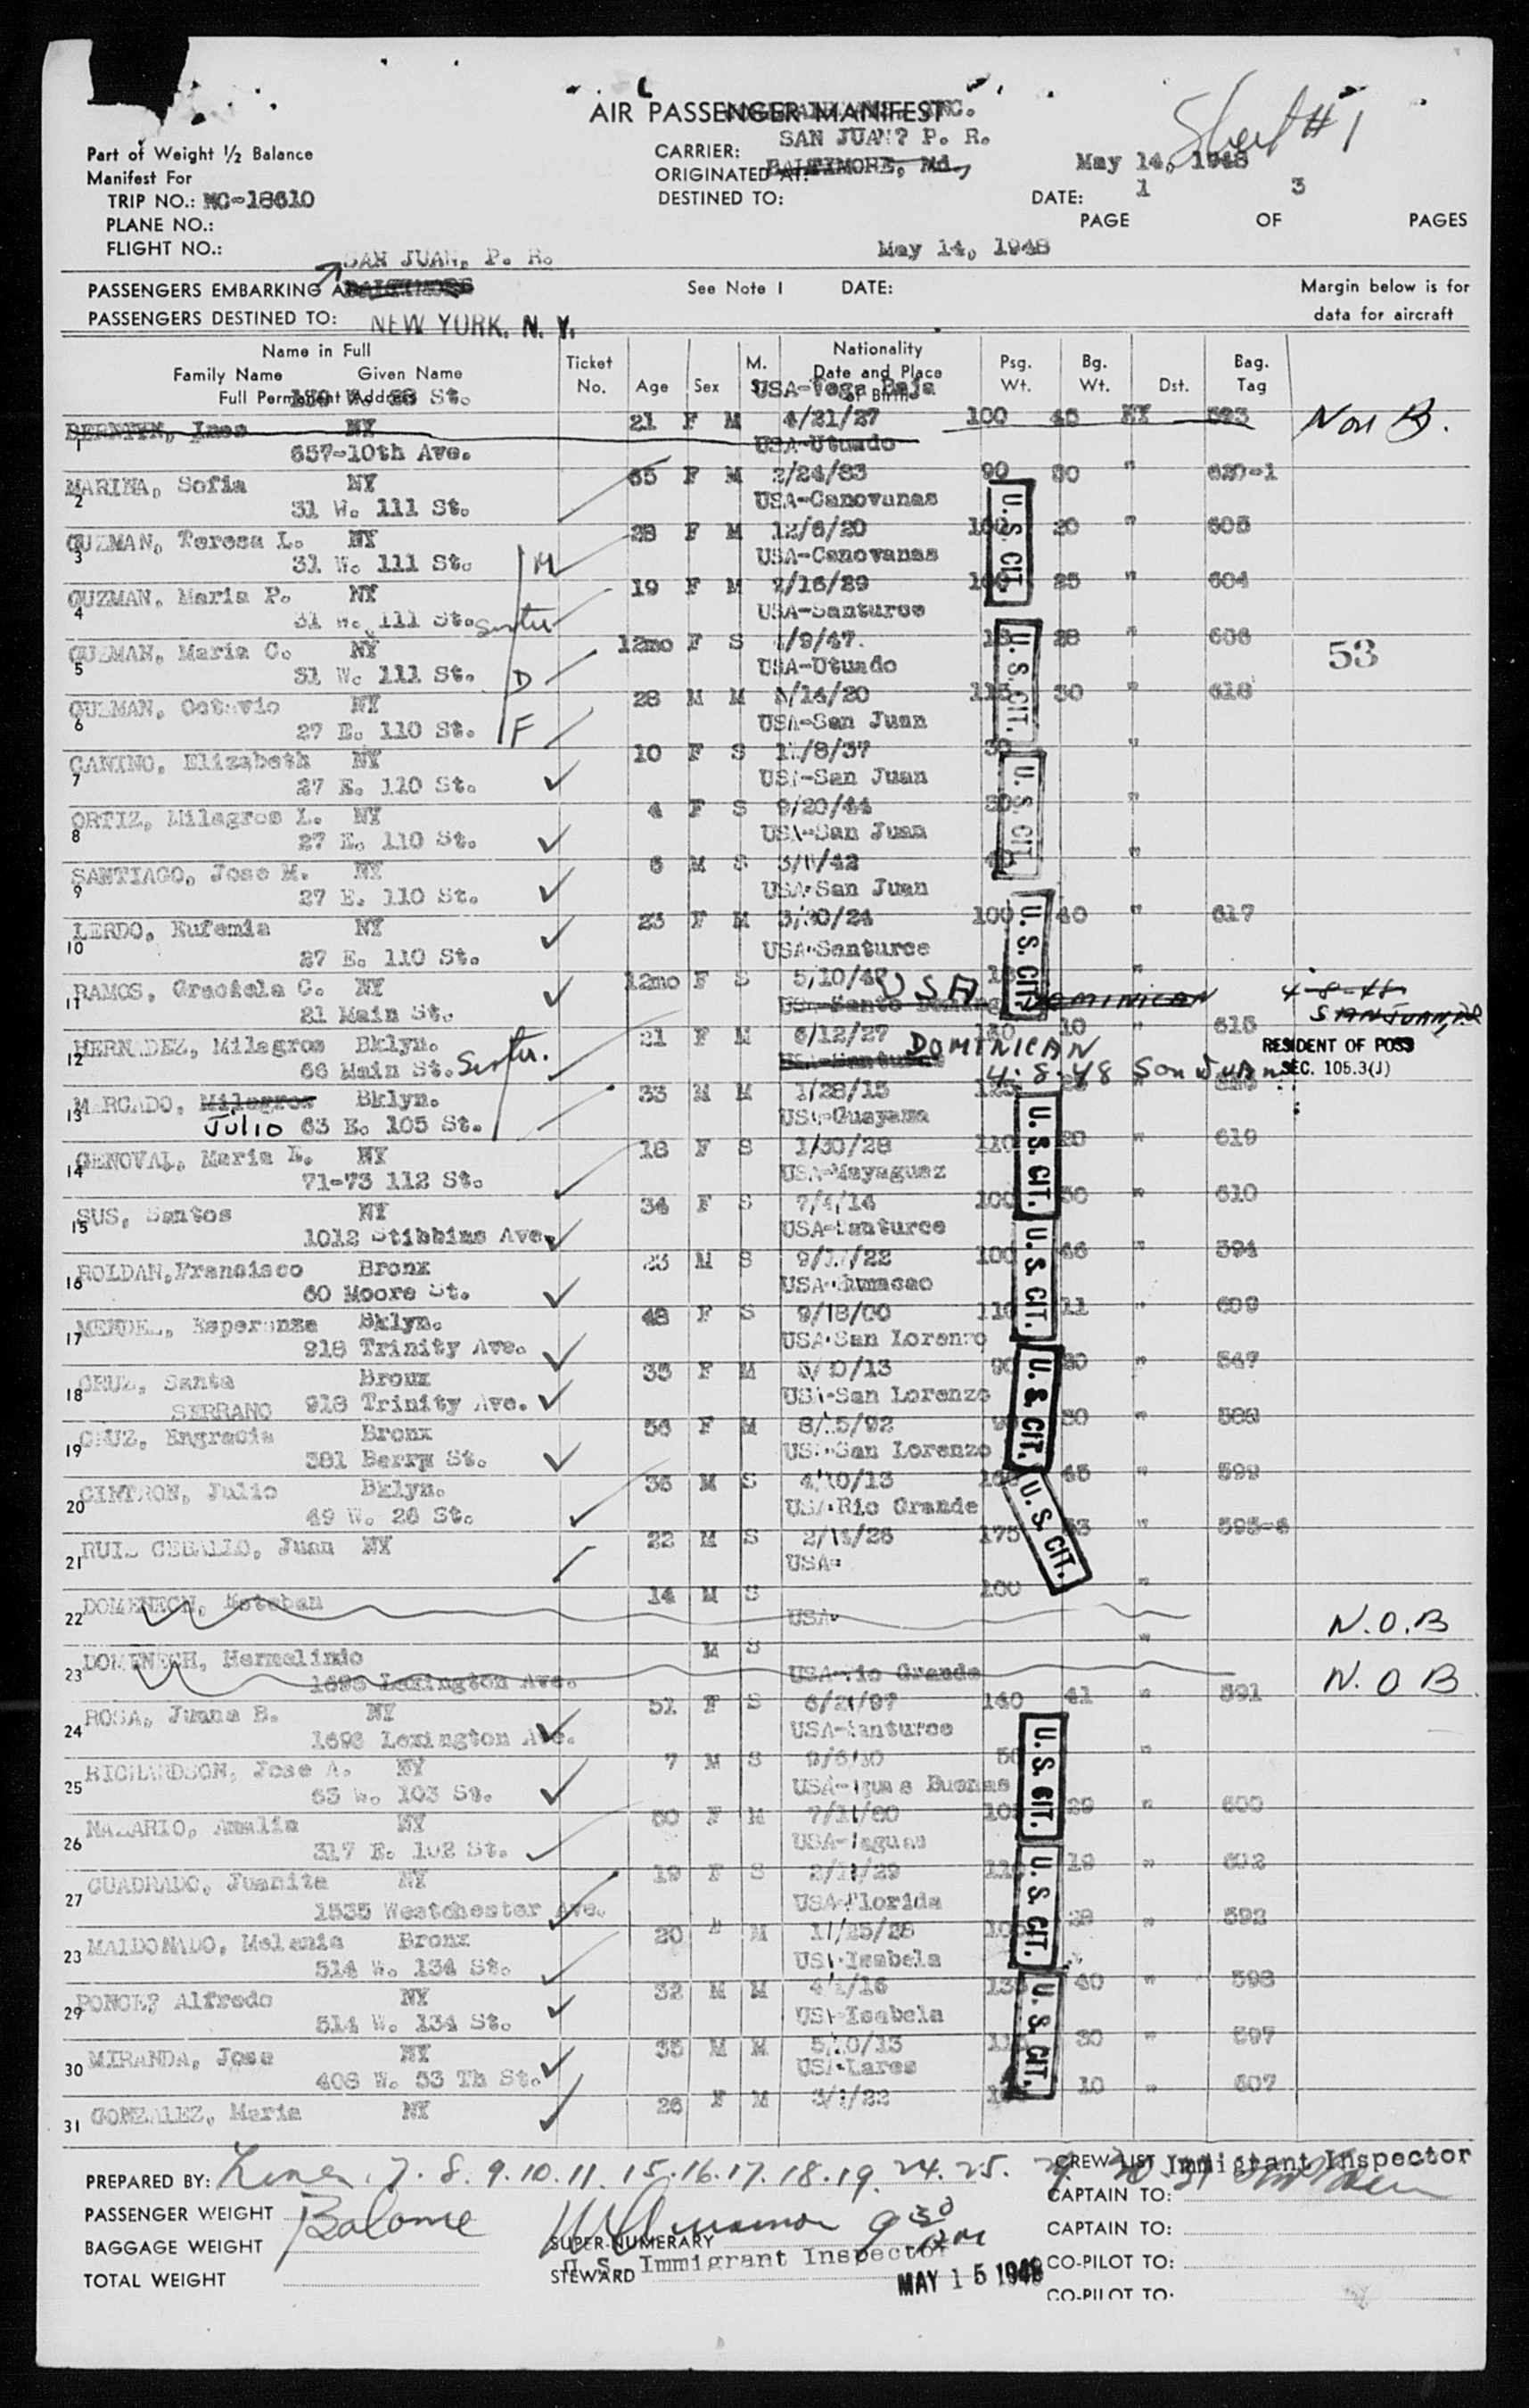 AIR PASSENGER MANIFEST
INC.
Sheet #1
Part of Weight 1/2 Balance
CARRIER: SAN JUAN? P. R.
Manifest For
ORIGINATED AT: BALTIMORE, Md,
May 14, 1948
TRIP NO.: NC-18610
DESTINED TO:
DATE: 1 3
PLANE NO.:
PAGE OF PAGES
FLIGHT NO.:
SAN JUAN, P. R.
May 14, 1948
PASSENGERS EMBARKING
See Note 1
DATE:
Margin below is for
PASSENGERS DESTINED TO: NEW YORK, N. Y.
data for aircraft
Name in Full
Family Name Given Name
Full Permanent Address
Ticket No.
Age
Sex
M.
Nationality
Date and Place of Birth
Psg. Wt.
Bg. Wt.
Dst.
Bag. Tag
St. USA-Vega Baja
1 Ines NY 21 F M 4/21/27 100 NY Non B.
657-10th Ave. USA-Utuado
2 MARINA, Sofia NY 65 F M 2/24/83 90 30 " 620-1
31 W. 111 St. USA-Canovanas
3 GUZMAN, Teresa L. NY 28 F M 12/6/20 20 " 605
31 W. 111 St. M USA-Canovanas
4 GUZMAN, Maria P. NY 19 F M 2/16/29 25 " 604
31 W. 111 St. Sister USA-Santurce
5 GUZMAN, Maria C. NY 12mo F S /9/47. 28 " 606 53
31 W. 111 St. D USA-Utuado
6 GUZMAN, Octavio NY 28 M M /14/20 115 30 " 618
27 E. 110 St. F USA-San Juan
7 CANINO, Elizabeth NY 10 F S /8/37 "
27 E. 110 St. USA-San Juan
8 ORTIZ, Milagros L. NY 4 F S 9/20/44 "
27 E. 110 St. USA-San Juan
9 SANTIAGO, Jose M. NY 6 M S /42 "
27 E. 110 St. USA-San Juan
10 LERDO, Eufemia NY 23 F M 3/30/24 100 40 " 617
27 E. 110 St. USA-Santurce
11 RAMOS, Graciela C. NY 12mo F S "
21 Main St. USA DOMINICAN 4-8-48
SAN JUAN, PR
12 Milagros Bklyn. 21 F M 6/12/27 130 10 " 615
66 Main St. Sister. DOMINICAN RESIDENT OF POSS
4-8-48 San Juan SEC. 105.3(J)
13 MERCADO, Milagros Bklyn. 33 M M 1/28/15 125
Julio 63 E. 105 St. USA-Guayama
14 GENOVAL, Maria L. NY 18 F S 1/30/28 110 20 " 619
71-73 112 St. USA-Mayaguez
15 SUS, Santos NY 34 F S 7/4/14 100 " 610
1012 Stibbins Ave. USA-Santurce
16 ROLDAN, Fransisco Bronx M S 100 46 " 594
60 Moore St. USA-Humacao
17 Esperanza Bklyn. 48 F S 9/18/00 110 11 " 609
918 Trinity Ave. USA-San Lorenzo
18 CRUZ, Santa Bronx 35 F M /13 90 " 547
SERRANO 918 Trinity Ave. USA-San Lorenzo
19 CRUZ, Engracia Bronx 56 F M "
381 Berry St. USA-San Lorenzo
20 CINTRON, Julio Bklyn. 36 M S 4/10/13 " 599
49 W. 26 St. USA-Rio Grande
21 RUIZ CEBALLO, Juan NY 22 M S 175 " 595-6
USA-
22 DOMENECH, Esteban 14 M S 100 " N.O.B
USA-
23 DOMENECH, Hermelindo M S " N.O B.
1693 Lexington Ave. USA-Rio Grande
24 ROSA, Juana B. NY 51 F S 140 41 " 591
1693 Lexington Ave. USA-Santurce
25 RICHARDSON, Jose A. NY 7 M S "
63 W. 103 St. USA-Aguas Buenas
26 NAZARIO, Amalia NY F M 29 " 600
317 E. 102 St. USA-Caguas
27 CUADRADO, Juanita NY 19 F S 19 " 602
1535 Westchester Ave. USA-Florida
28 MALDONADO, Melania Bronx 20 M 11/25/28 " 592
514 W. 134 St. USA-Isabela
29 PONCE? Alfredo NY 32 M M 40 " 598
514 W. 134 St. USA-Isabela
30 MIRANDA, Jose NY 35 M M 30 " 597
408 W. 53 Th St. USA-Lares
31 GONZALEZ, Maria NY 26 F M 10 " 607
U. S. CIT.
U. S. CIT.
U. S. CIT.
U. S. CIT.
U. S. CIT.
U. S. CIT.
U. S. CIT.
U. S. CIT.
U. S. CIT.
U. S. CIT.
U. S. CIT.
PREPARED BY: Lines 7. 8. 9. 10. 11. 15. 16. 17. 18. 19. 24. 25.
CREW LIST Immigrant Inspector
CAPTAIN TO:
PASSENGER WEIGHT
CAPTAIN TO:
BAGGAGE WEIGHT Balance
SUPER-NUMERARY 9 30
CO-PILOT TO:
STEWARD U. S. Immigrant Inspector
TOTAL WEIGHT
MAY 15 1948
CO-PILOT TO: